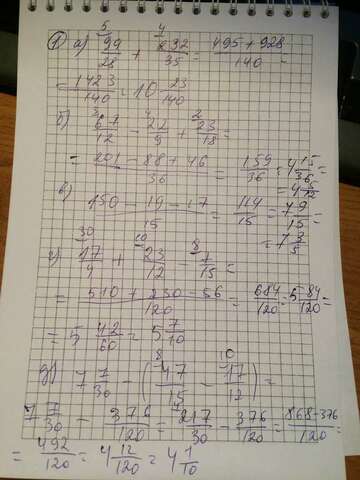 5 4
1 а) 99/28 + 232/35 = 495 + 928/140 =
= 1423/140 = 10 23/140
3 4 2
б) 67/12 - 22/9 + 23/18 =
= 201 - 88 + 46/36 = 159/36 = 4 15/36 =
= 4 5/12
в) 150 - 19 - 17/15 = 114/15 = 7 9/15 =
= 7 3/5
30 10 8
г) 17/4 + 23/12 - 7/15 =
= 510 + 230 - 56/120 = 684/120 = 5 84/120 =
= 5 42/60 = 5 7/10
8 10
д) 7 7/30 - (47/15 - 17/12) =
7 7/30 - 376/120 = 217/30 - 376/120 = 868-376/120 =
= 492/120 = 4 12/120 = 4 1/10